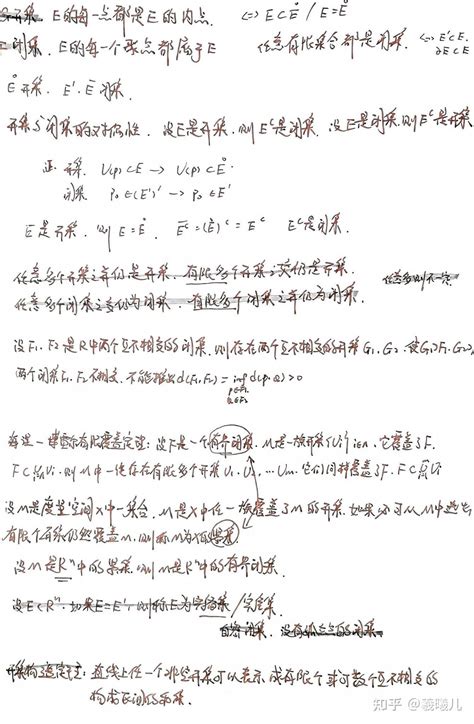 开集. E的每一点都是E的内点. ⇔ E⊂E̊ / E=E̊
闭集. E的每一个聚点都属于E 任意有限集合都是闭集. ⇔ E'⊂E. ∂E⊂E
E̊ 开集. E'. Ē 闭集.
开集与闭集的对偶性. 设E是开集. 则Eᶜ是闭集. 设E是闭集. 则Eᶜ是开集
证 开集. U(p)⊂E → U(p)⊂E̊
闭集 p₀∈(E')' → p₀∈E'
E是开集. 则 E=E̊. Eᶜ是闭集.
任意多个开集之并仍是开集. 有限多个开集之交仍是开集. 任意多则不一定
任意多个闭集之交仍为闭集. 有限多个闭集之并仍为闭集.
设F₁, F₂是R中两个互不相交的闭集. 则存在两个互不相交的开集G₁, G₂. 使G₁⊃F₁ G₂⊃
两个闭集F₁, F₂不相交. 不能推出d(F₁,F₂) = inf d(P,Q) > 0
P∈F₁
Q∈F₂
海涅—博雷尔有限覆盖定理: 设F是一个有界闭集. M是一族开集{Uᵢ} i∈Λ. 它覆盖了F.
则M中一定存在有限多个开集U₁, U₂ ... Um. 它们同样覆盖了F.
设M是度量空间X中一集合. M是X中任一族覆盖了M的开集. 如果必可从M中选出
有限个开集仍然覆盖M. 则称M为X的紧集
设M是Rⁿ中的紧集. 则M是Rⁿ中的有界闭集.
设E⊂Rⁿ. 如果E=E'. 则称E为完备集/完全集
自密闭集. 没有孤立点的闭集
开集构造定理: 直线上任一个非空开集可以表示成有限个或可数个互不相交的
构成区间的和集.
知乎 @羲曦儿